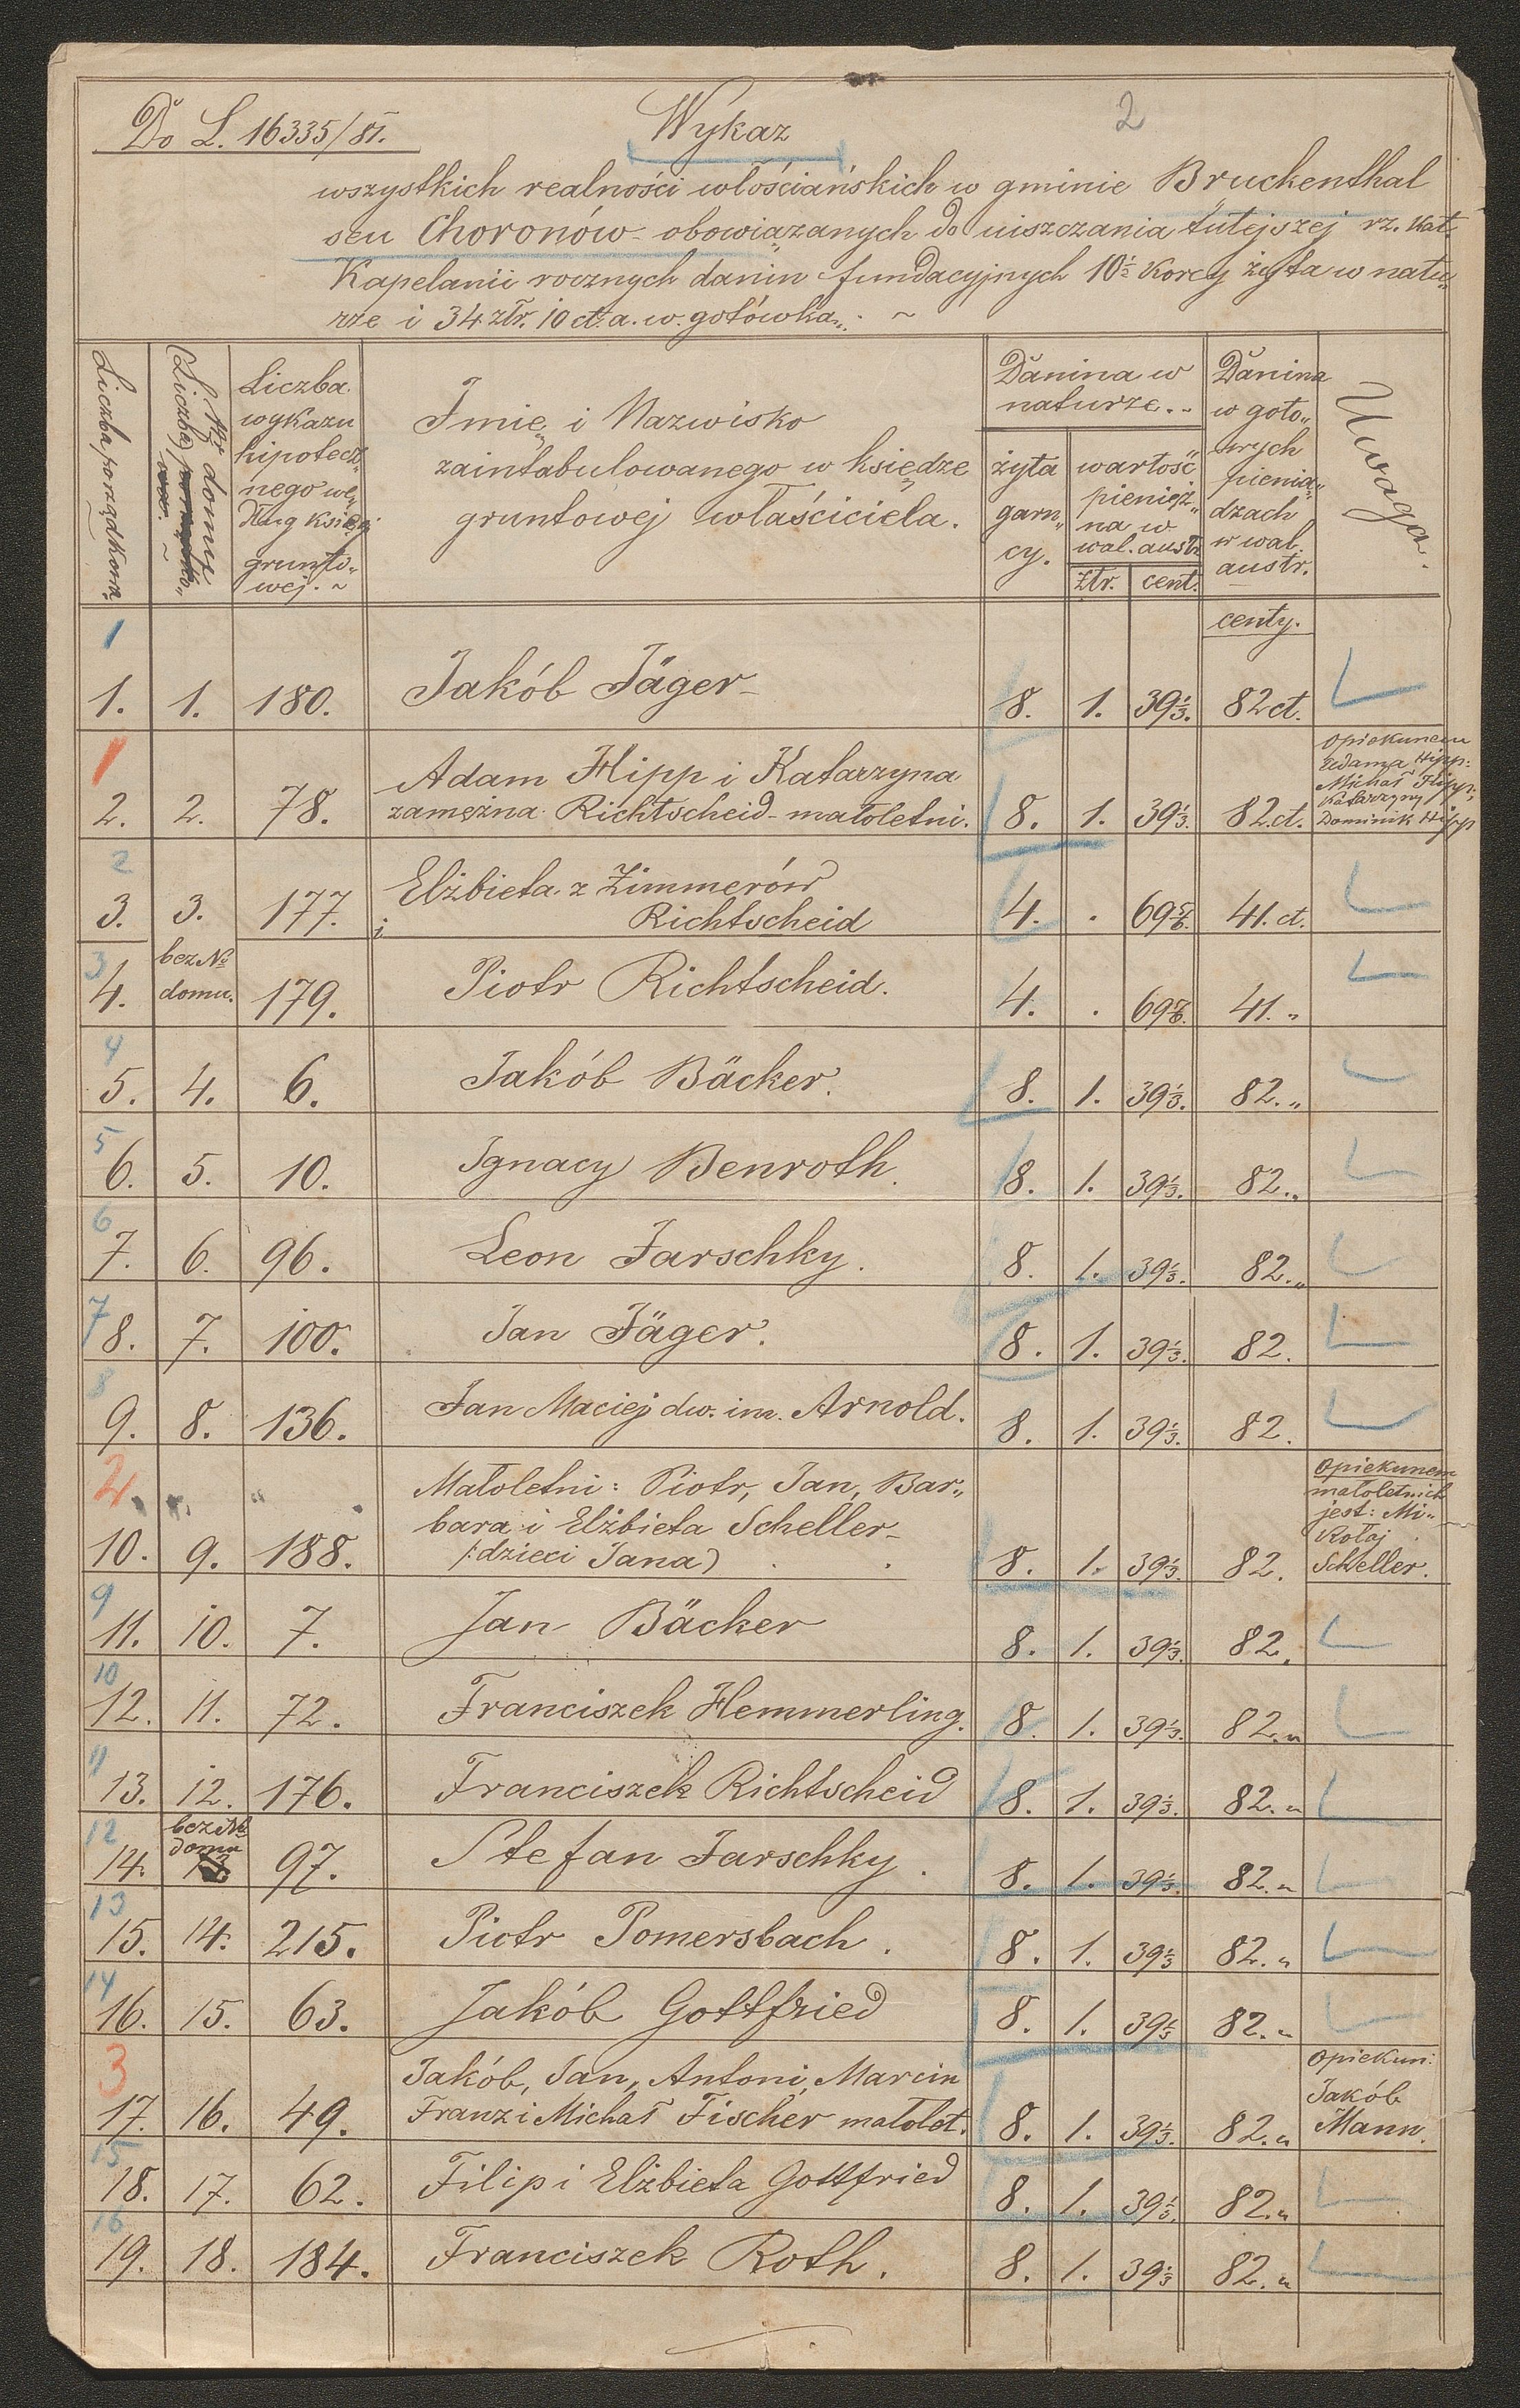 Do L. 16335/81.
Wykaz
2
wszystkich realności włościańskich w gminie Bruckenthal
seu Choronów obowiązanych do uiszczania tutejszej rz. Kat.
Kapelanii rocznych danin fundacyjnych 10½ Korcy żyta w natu„
rze i 34 złr. 10 ct. a. w. gotówką. ~
Liczba porządkowa
Nr domu
(Liczba
Liczba
wykazu
hipotecz„
nego we„
dług Księgi
grunto„
wej. ~
Imię i Nazwisko
zaintabulowanego w księdze
gruntowej właściciela.
Danina w
naturze.
żyta
garn„
cy.
wartość
pienięż„
na w
wal. austr.
złr. cent.
Danina
w goto„
wych
pienią„
dzach
w wal.
austr.
centy.
Uwaga.
1
1. 1. 180. Jakób Jäger 8. 1. 39⅓. 82 ct.
1
2. 2. 78. Adam Hipp i Katarzyna
zamężna Richtscheid małoletni. 8. 1. 39⅓. 82. ct.
Opiekunem
Adama Hipp:
Michał Hipp,
Katarzyny
Dominik Hipp
2
3. 3. 177. Elżbieta z Zimmerów
Richtscheid 4. . 69⅚. 41. ct.
3
4. bez No
domu. 179. Piotr Richtscheid. 4. . 69⅚. 41. „
4
5. 4. 6. Jakób Bäcker. 8. 1. 39⅓. 82. „
5
6. 5. 10. Ignacy Benroth. 8. 1. 39⅓. 82. „
6
7. 6. 96. Leon Jarschky. 8. 1. 39⅓. 82. „
7
8. 7. 100. Jan Jäger. 8. 1. 39⅓. 82.
8
9. 8. 136. Jan Maciej dw. im. Arnold. 8. 1. 39⅓. 82.
2.
Małoletni: Piotr, Jan, Bar„
bara i Elżbieta Scheller
10. 9. 188. /:dzieci Jana) 8. 1. 39⅓. 82.
Opiekunem
małoletnich
jest: Mi„
kołaj
Scheller.
9
11. 10. 7. Jan Bäcker 8. 1. 39⅓. 82.
10
12. 11. 72. Franciszek Hemmerling. 8. 1. 39⅓. 82. „
11
13. 12. 176. Franciszek Richtscheid 8. 1. 39⅓. 82. „
12
bez No
domu
14. 13 97. Stefan Jarschky. 8. 1. 39⅓. 82. „
13
15. 14. 215. Piotr Pomersbach. 8. 1. 39⅓ 82. „
14
16. 15. 63. Jakób Gottfried 8. 1. 39⅓ 82. „
3
Jakób, Jan, Antoni, Marcin
17. 16. 49. Franz i Michał Fischer małolet. 8. 1. 39⅓. 82. „
Opiekun:
Jakób
Mann.
15
18. 17. 62. Filip i Elżbieta Gottfried 8. 1. 39⅓. 82. „
16
19. 18. 184. Franciszek Roth. 8. 1. 39⅓ 82. „